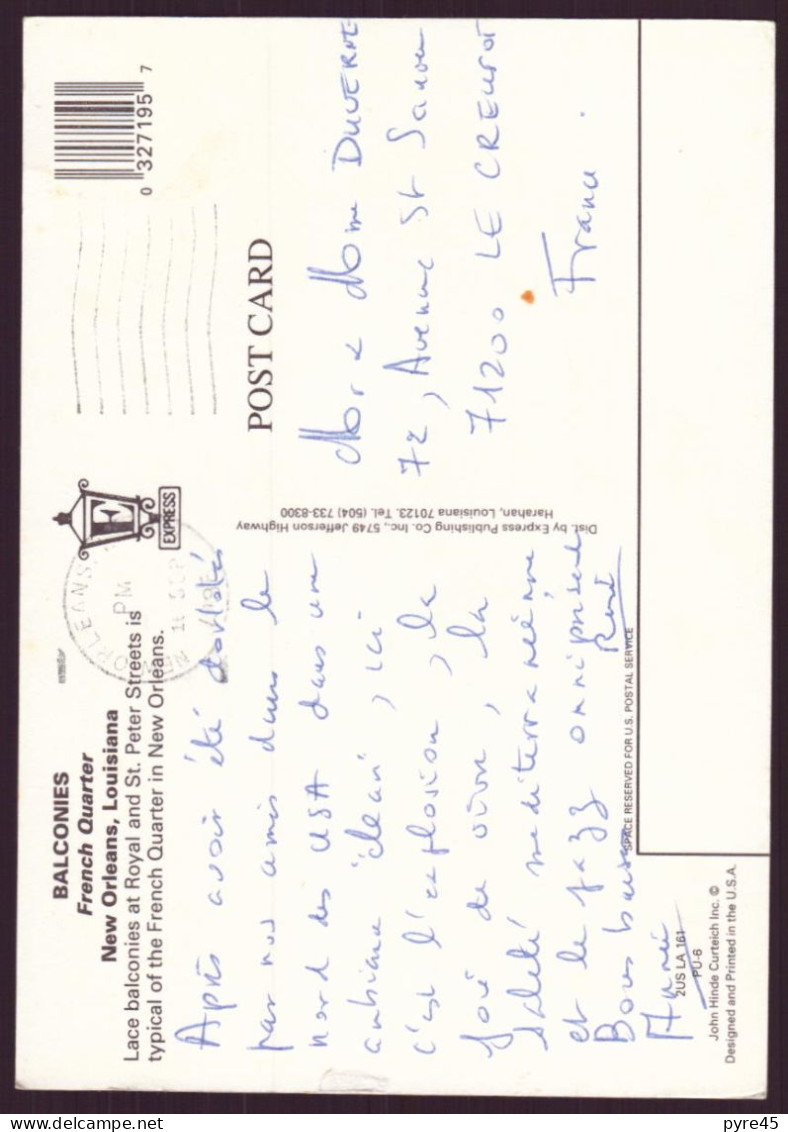 BALCONIES
French Quarter
New Orleans, Louisiana
Lace balconies at Royal and St. Peter Streets is
typical of the French Quarter in New Orleans.
Après avoir été dorlotés
par nos amis dans le
nord des USA dans une
ambiance "clean", ici
c'est l'explosion, la
joie de vivre, la
saleté méditerranéenne
et le jazz omniprésent
Bons baisers
René
2US LA 161
PU-6
John Hinde Curteich Inc. ©
Designed and Printed in the U.S.A.
E
EXPRESS
NEW ORLEANS
PM
SEP
Dist. by Express Publishing Co. Inc., 5749 Jefferson Highway
Harahan, Louisiana 70123. Tel. (504) 733-8300
0 327195 7
POST CARD
Mr & Mme DUVERNE
72, Avenue St Sauveur
71200 LE CREUSOT
France
SPACE RESERVED FOR U.S. POSTAL SERVICE
pyre45